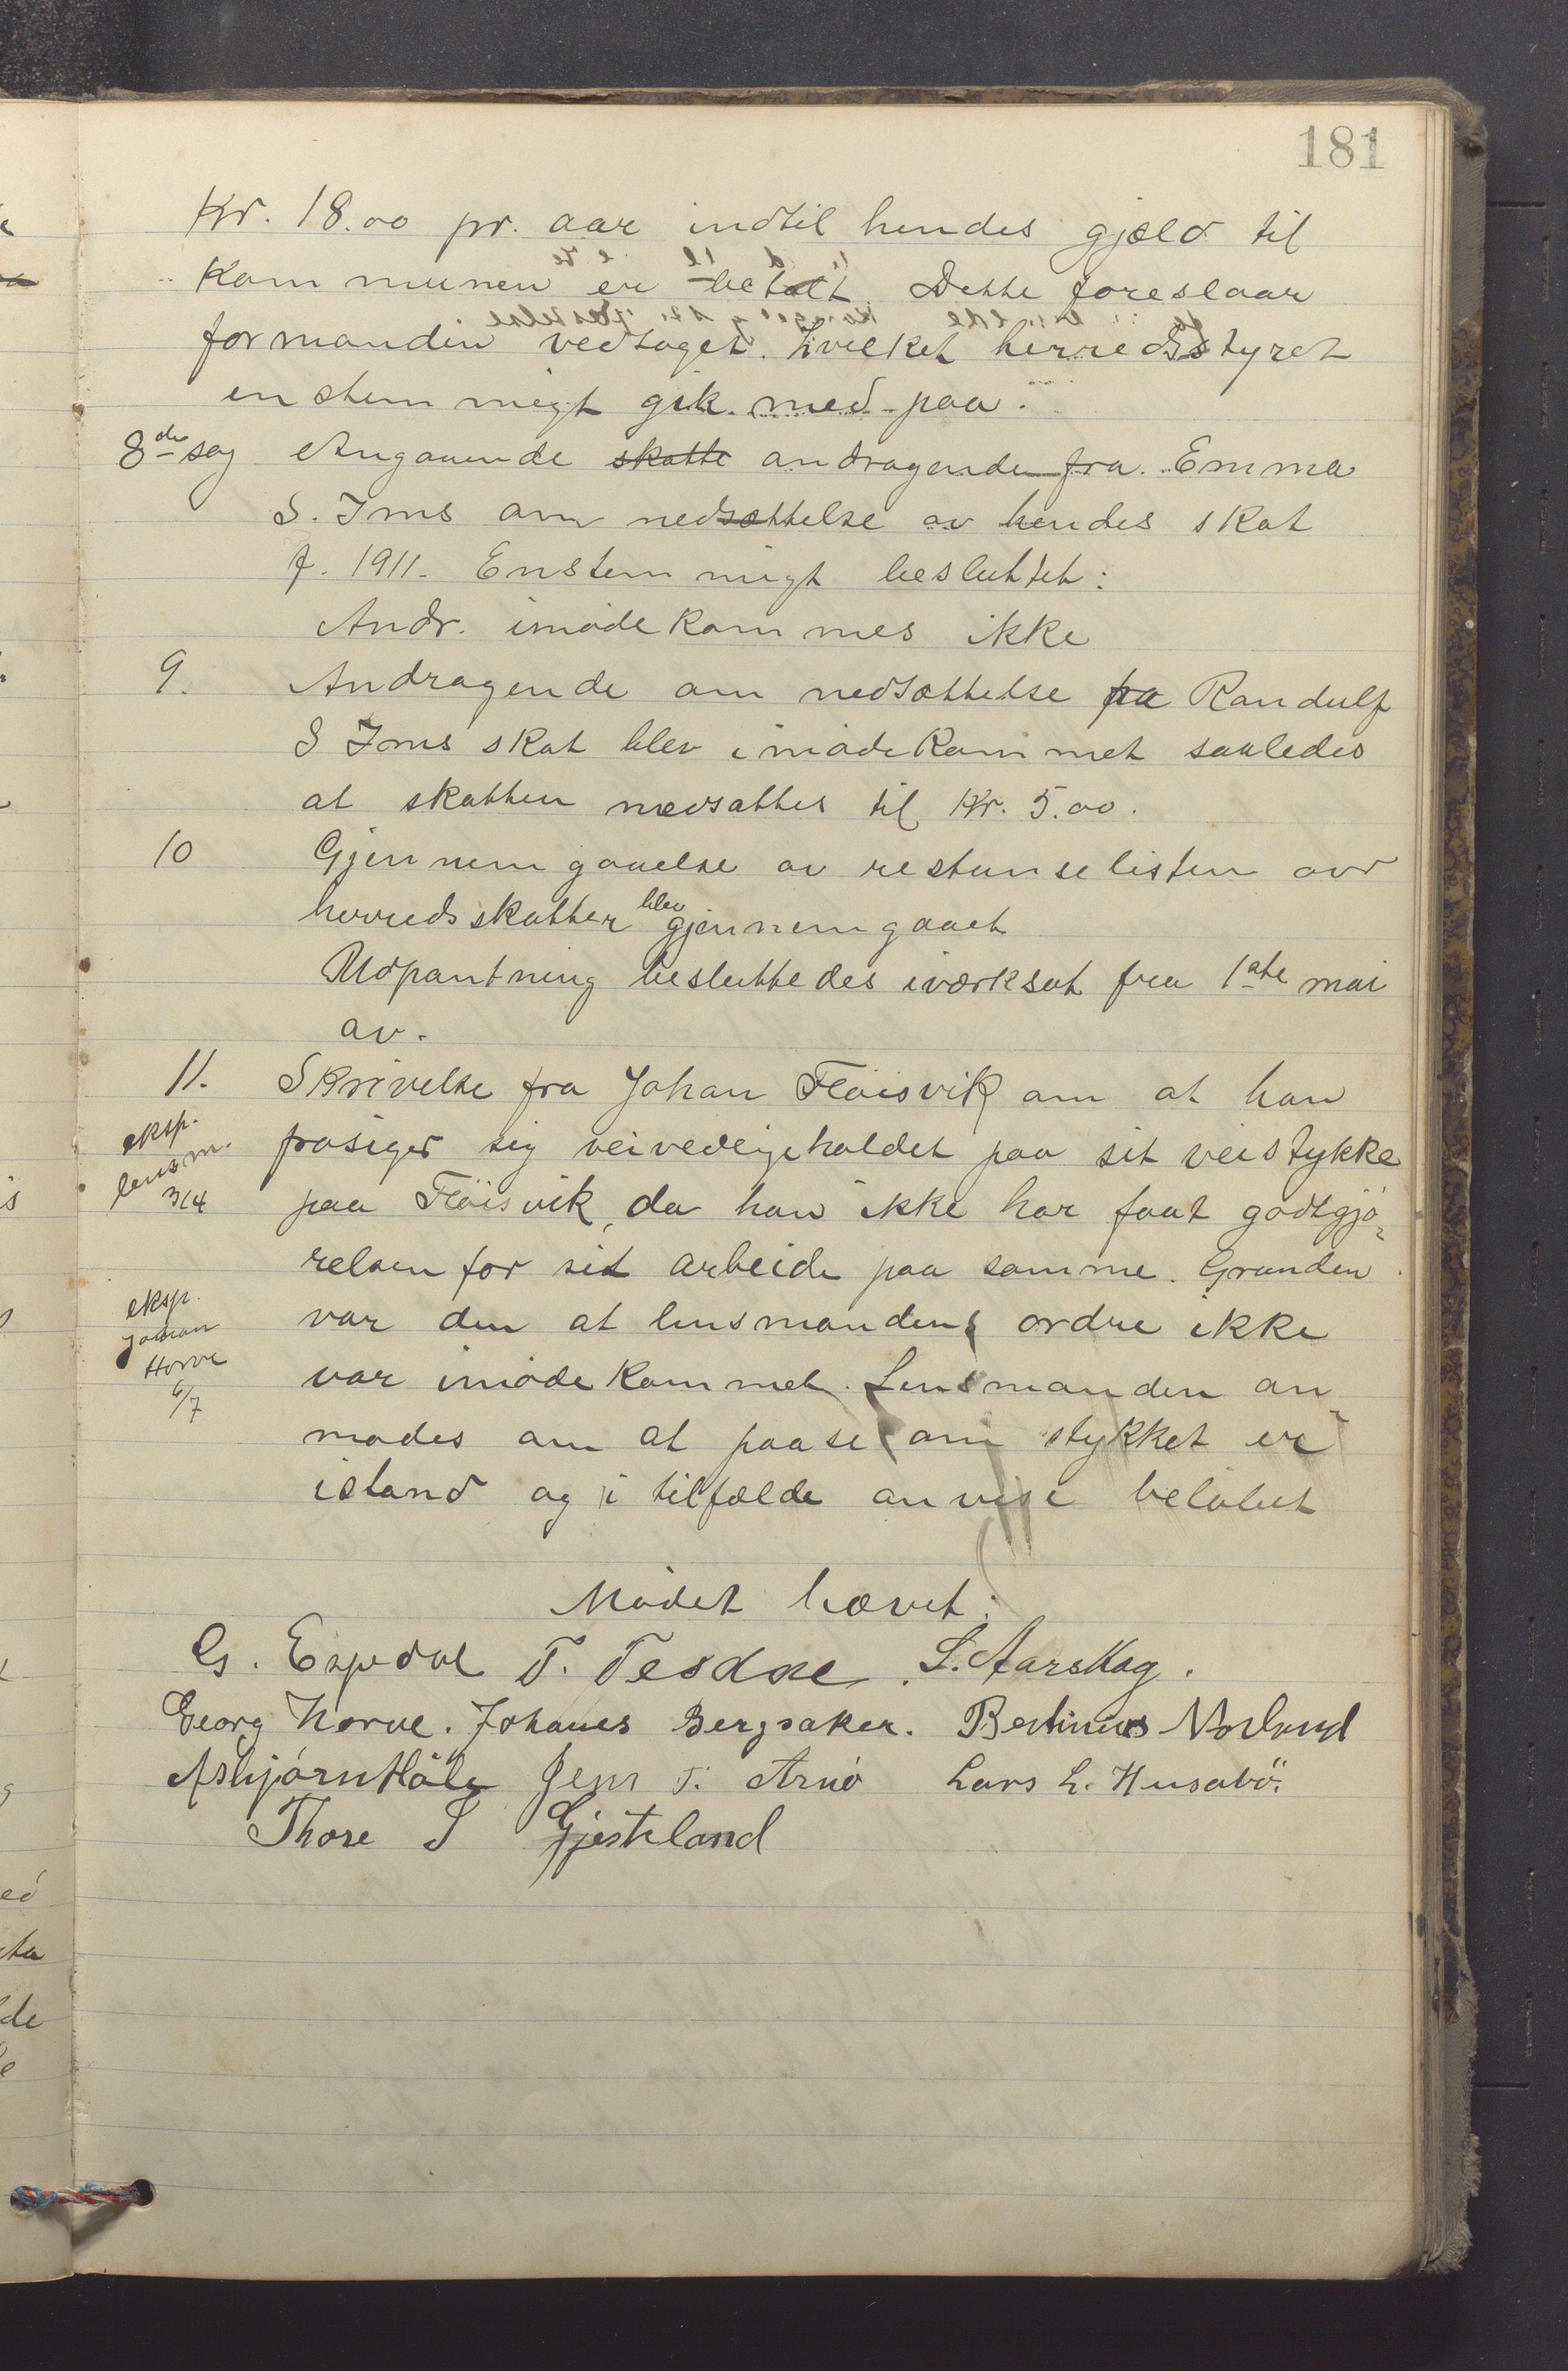 181
Kr. 18.00 pr. aar indtil hendes gjæld til
Kommunen er betalt. Dette foreslaar
formanden vedtaget. Hvilket herredsstyret
enstemmigt gik med paa.
8de sag Angaaende skatte andragende fra Emma
S. Ims om nedsættelse av hendes skat
f. 1911. Enstemmigt besluttet:
Andr. imødekommes ikke
9. Andragende om nedsættelse fra Randulf
S Ims skat blev imødekommet saaledes
at skatten nedsattes til Kr. 5.00.
10 Gjennemgaaelse av restanselisten over
herredsskatter blev gjennemgaaet
Udpantning besluttedes iværksat fra 1ste mai
av.
11. Skrivelse fra Johan Fløisvik om at han
eksp. lensm. 3/4
frasiger sig veivedligeholdet paa sit veistykke
paa Fløisvik, da han ikke har faat godtgjø-
relsen for sit arbeide paa samme. Grunden
eksp. Johan Horve 6/7
var den at lensmandens ordre ikke
var imødekommet. Lensmanden an-
modes om at paase om stykket er
istand og i tilfælde anvise beløbet
Mødet hævet.
G. Espedal T. Tesdal. L. Aarskog.
Georg Horve. Johanes Bergsaker. Bertinius Norland
Asbjørn Høle Jens T. Arnø Lars L. Husabø.
Thore S Gjesteland